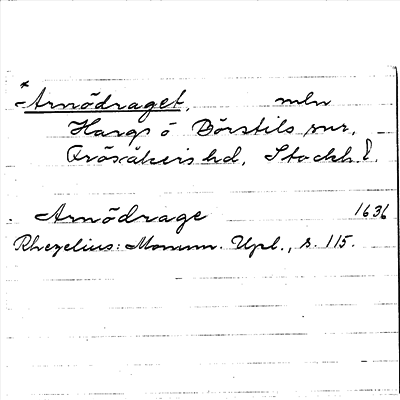 *Arnödraget, mln
Hargs o Börstils snr,
Frösåkers hd, Stockh. l.
Arnödrage 1636
Rhezelius: Monum. Upl., s. 115.